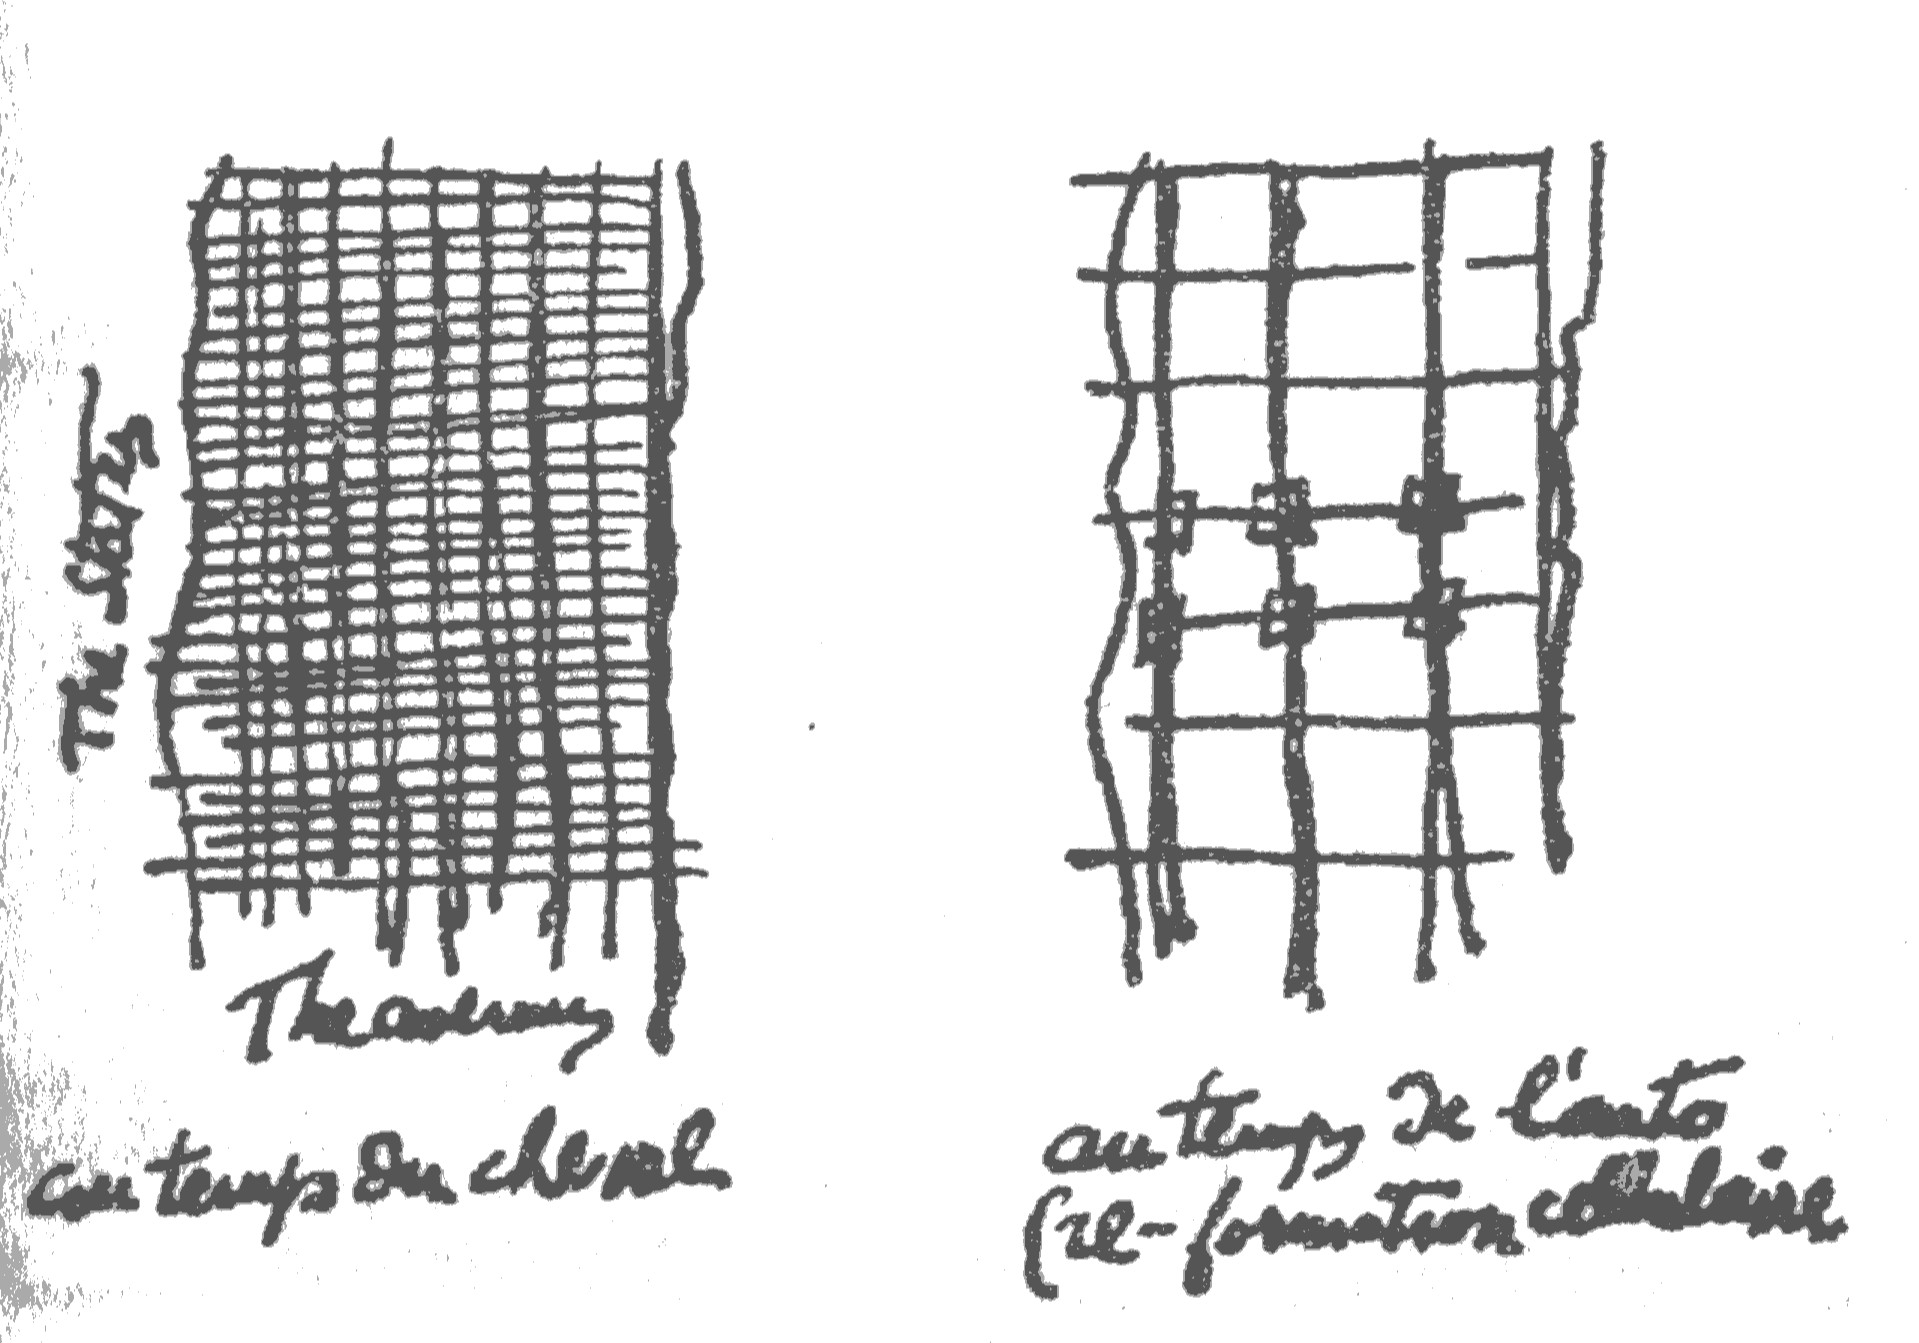 The Streets
The avenues
au temps du cheval
au temps de l'auto
(re-formation cellulaire